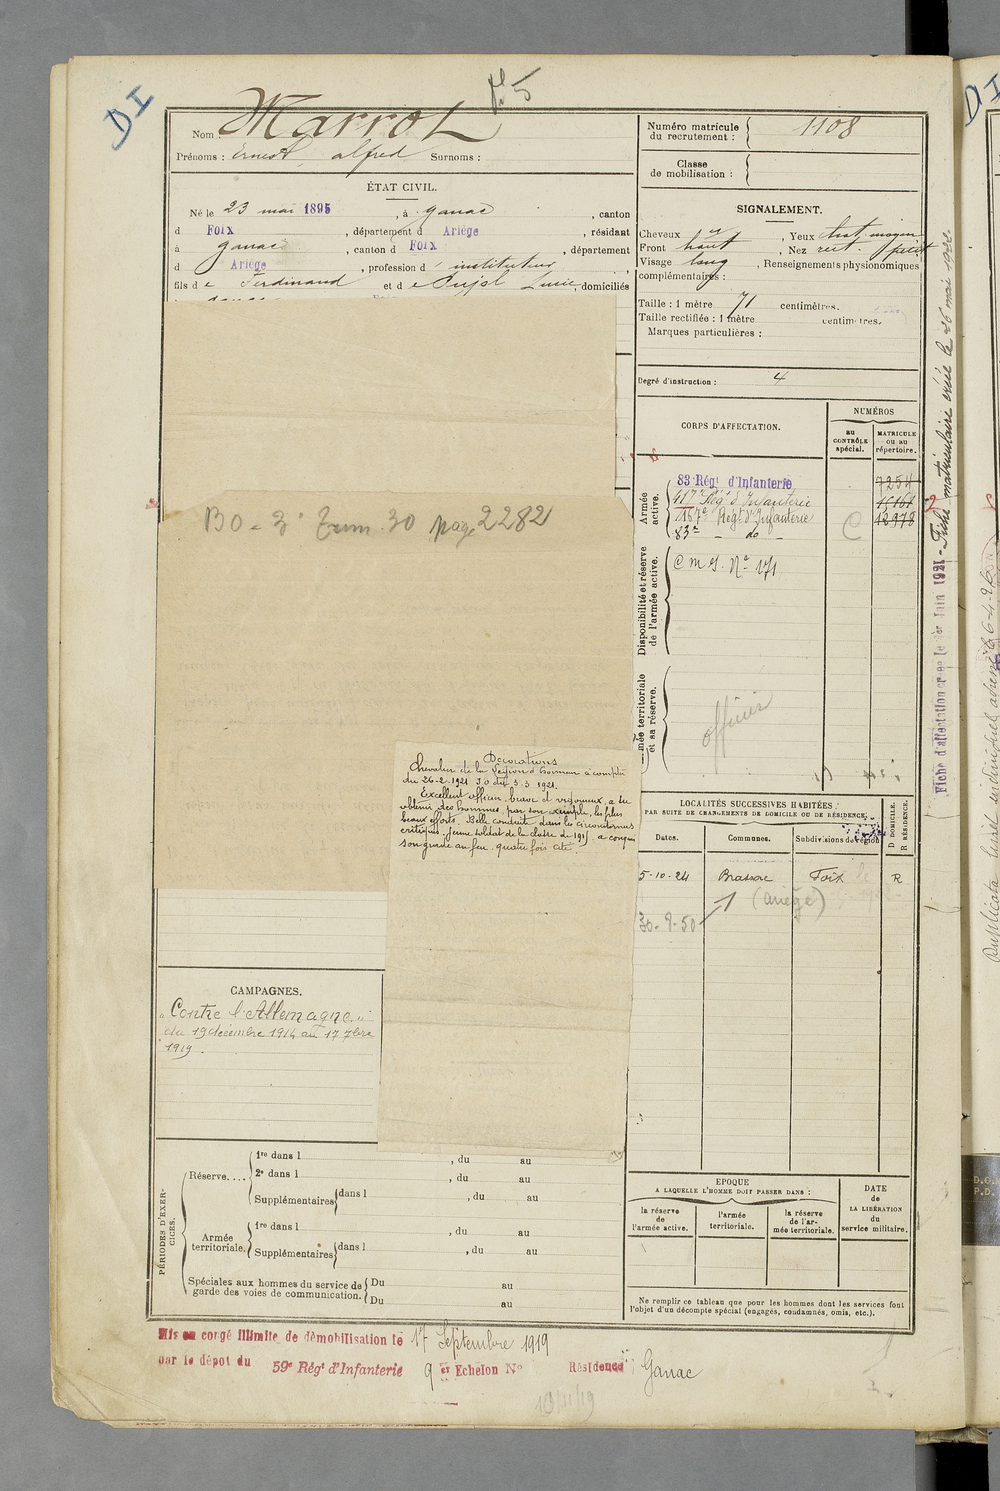 DI
N° 5
Nom : Marrot
Prénoms : Ernest, alfred Surnoms :
Numéro matricule du recrutement : 1108
Classe de mobilisation :
ÉTAT CIVIL.
Né le 23 mai 1895, à ganac, canton
d Foix, département d Ariège, résidant
à ganac, canton d Foix, département
d Ariège, profession d' instituteur,
fils de Ferdinand et de Pujol Lucie, domiciliés
SIGNALEMENT.
Cheveux, Yeux chat. moyen
Front haut, Nez rect. petit
Visage long, Renseignements physionomiques
complémentaires :
Taille : 1 mètre 71 centimètres.
Taille rectifiée : 1 mètre centimètres.
Marques particulières :
Degré d'instruction : 4
CORPS D'AFFECTATION.
NUMÉROS
au CONTRÔLE spécial.
MATRICULE ou au répertoire.
Armée active.
83 Régt d'Infanterie 7254
117e Régt d'Infanterie 15161
167e Régt d'Infanterie 12978
83e - do -
C
Disponibilité et réserve de l'armée active.
C m J. N° 171
Armée territoriale et sa réserve.
officier
BO - 3° Trim. 30 page 2282
Décorations
Chevalier de la Légion d'honneur à compter
du 26-2-1921 J.O du 5.3 1921.
Excellent officier, brave et vigoureux, a su
obtenir des hommes, par son exemple, les plus
beaux efforts. Belle conduite dans les circonstances
critiques. Jeune soldat de la classe de 1915 a conquis
son grade au feu. quatre fois cité
LOCALITÉS SUCCESSIVES HABITÉES
PAR SUITE DE CHANGEMENTS DE DOMICILE OU DE RÉSIDENCE.
Dates. Communes. Subdivisions de région
D DOMICILE. R RÉSIDENCE.
5-10-24 Brassac Foix R
(ariège)
30-9-50
CAMPAGNES.
"Contre l'Allemagne"
du 19 décembre 1914 au 17 7bre
1919.
PÉRIODES D'EXERCICES.
Réserve....
1re dans l , du au
2e dans l , du au
Supplémentaires dans l , du au
Armée territoriale.
1re dans l , du au
Supplémentaires dans l , du au
Spéciales aux hommes du service de garde des voies de communication.
Du au
Du au
EPOQUE
A LAQUELLE L'HOMME DOIT PASSER DANS :
la réserve de l'armée active.
l'armée territoriale.
la réserve de l'armée territoriale.
DATE de LA LIBÉRATION du service militaire.
Ne remplir ce tableau que pour les hommes dont les services font
l'objet d'un décompte spécial (engagés, condamnés, omis, etc.).
Mis en congé illimité de démobilisation le 17 Septembre 1919
par le dépôt du 59e Régt d'Infanterie 9 er Echelon N° Résidence Ganac
10/11/19
Fiche d'affectation créée le 1er Juin 1921 - Fiche matriculaire créée le 26 mai 1922.